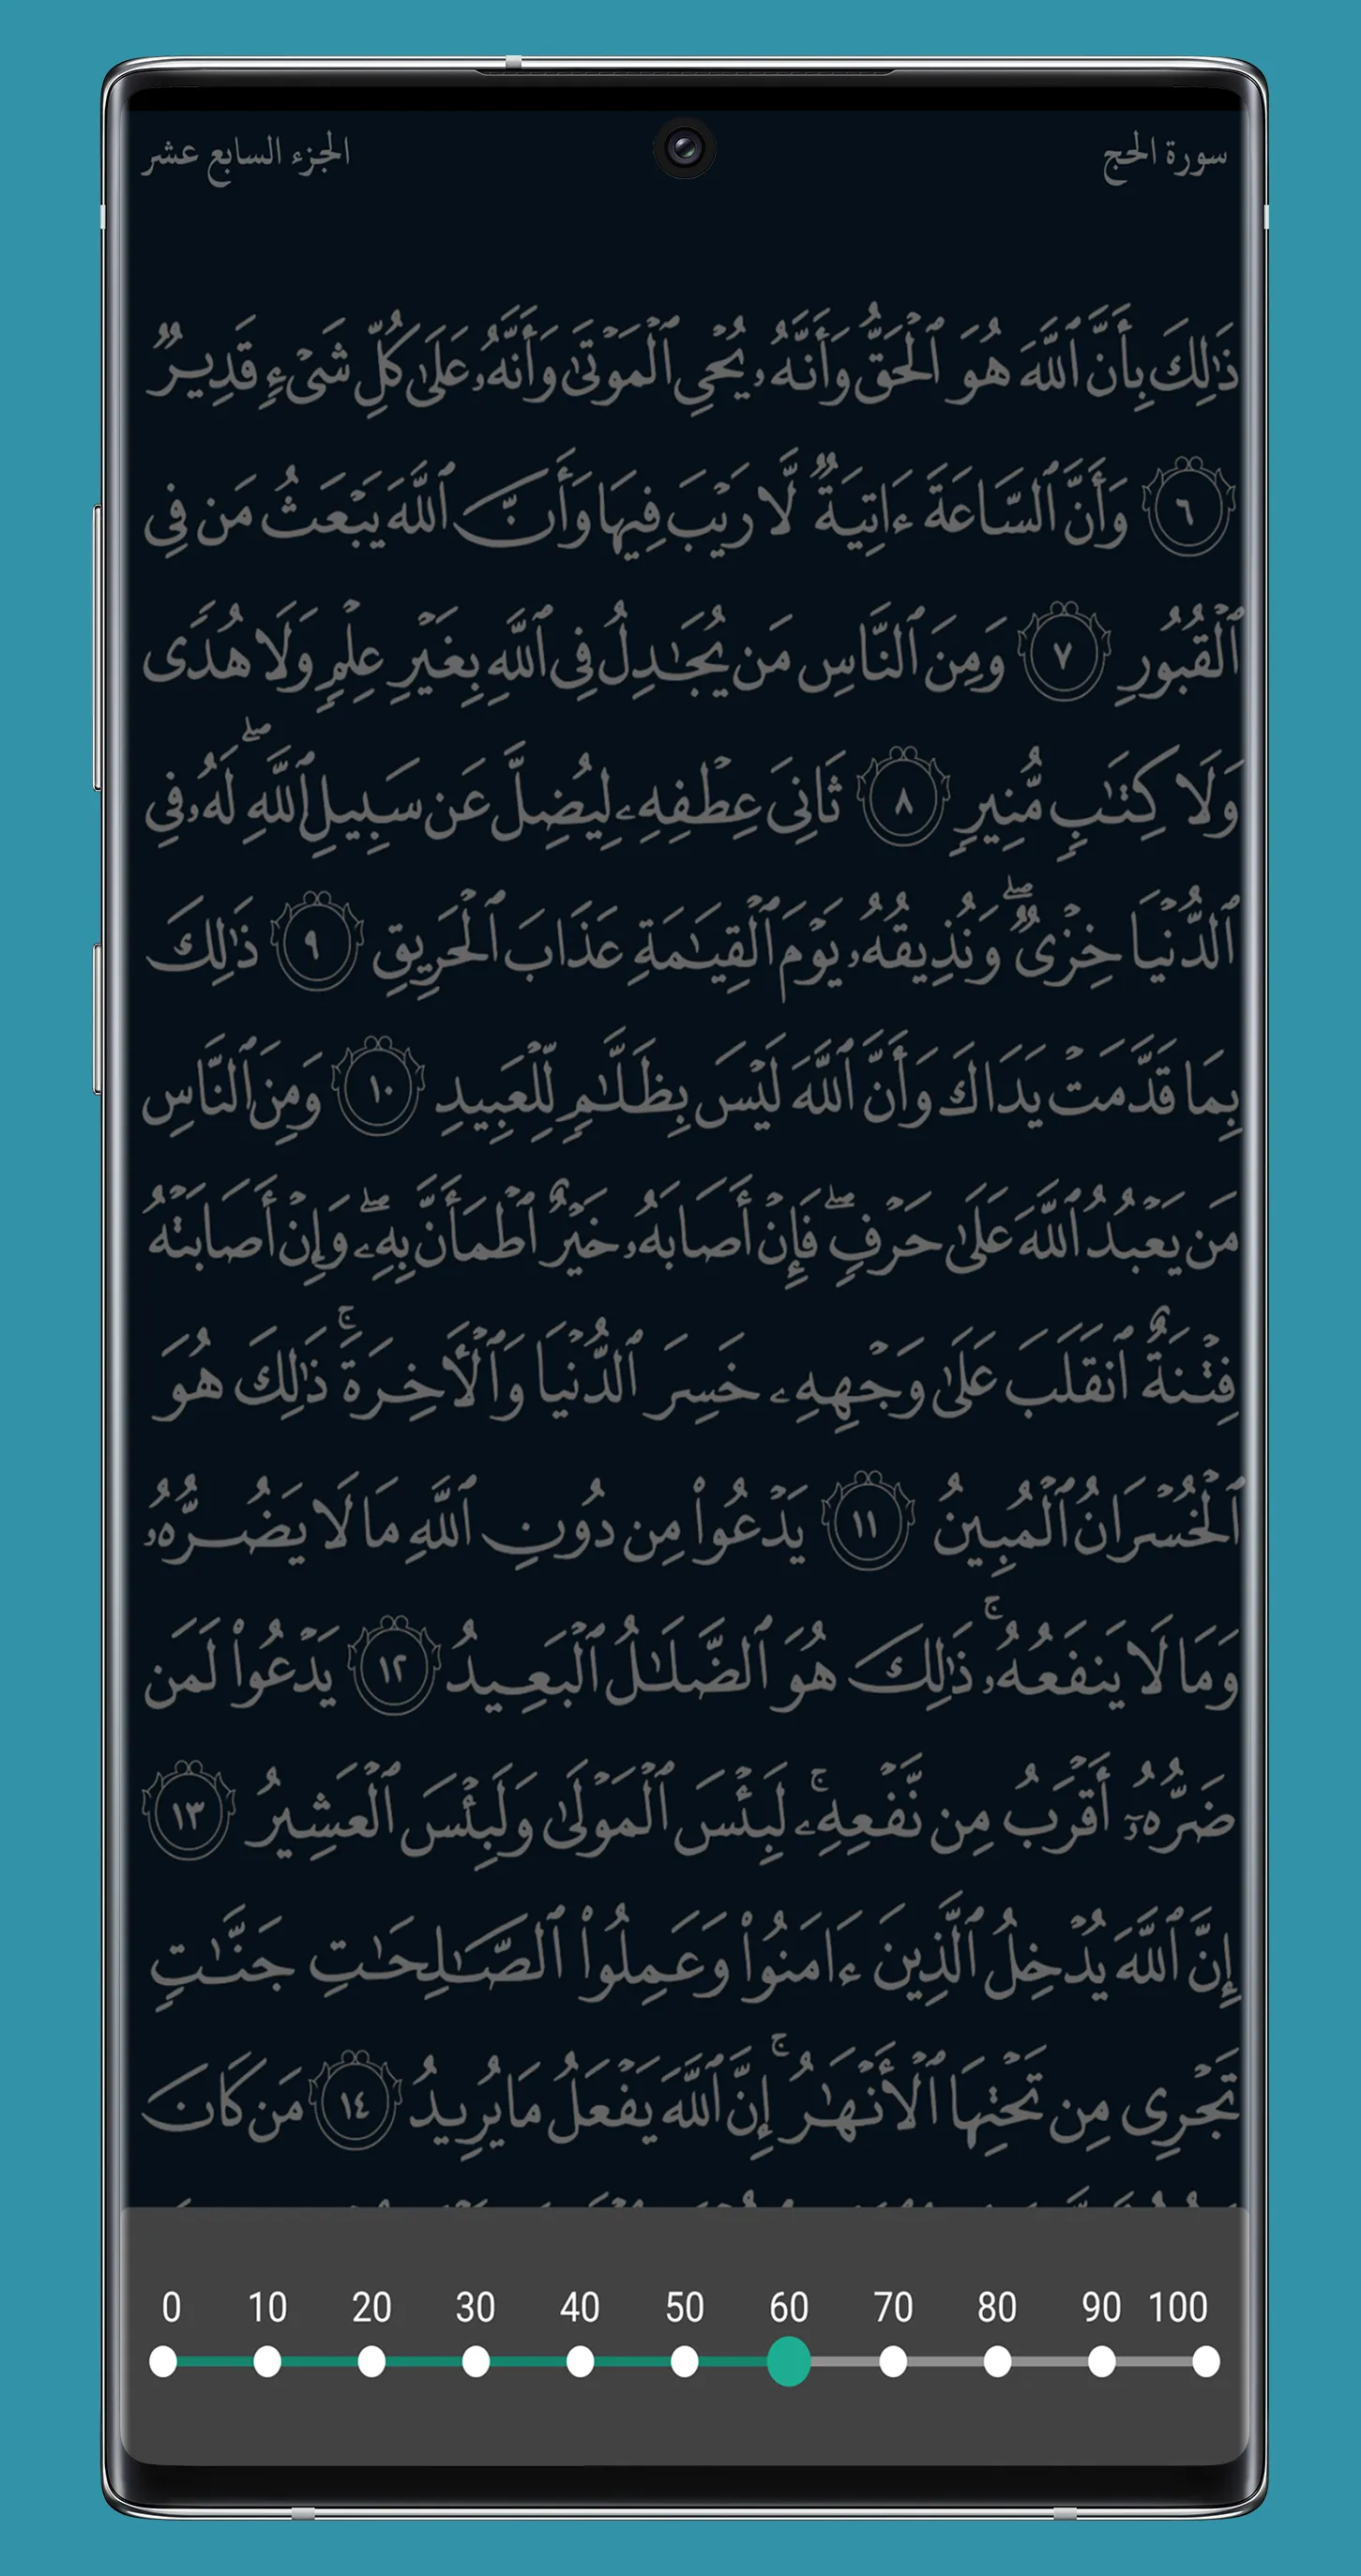 سورة الحج
الجزء السابع عشر
ذَٰلِكَ بِأَنَّ ٱللَّهَ هُوَ ٱلْحَقُّ وَأَنَّهُۥ يُحْىِ ٱلْمَوْتَىٰ وَأَنَّهُۥ عَلَىٰ كُلِّ شَىْءٍۢ قَدِيرٌۭ
٦ وَأَنَّ ٱلسَّاعَةَ ءَاتِيَةٌۭ لَّا رَيْبَ فِيهَا وَأَنَّ ٱللَّهَ يَبْعَثُ مَن فِى
ٱلْقُبُورِ ٧ وَمِنَ ٱلنَّاسِ مَن يُجَٰدِلُ فِى ٱللَّهِ بِغَيْرِ عِلْمٍۢ وَلَا هُدًۭى
وَلَا كِتَٰبٍۢ مُّنِيرٍۢ ٨ ثَانِىَ عِطْفِهِۦ لِيُضِلَّ عَن سَبِيلِ ٱللَّهِ ۖ لَهُۥ فِى
ٱلدُّنْيَا خِزْىٌۭ ۖ وَنُذِيقُهُۥ يَوْمَ ٱلْقِيَٰمَةِ عَذَابَ ٱلْحَرِيقِ ٩ ذَٰلِكَ
بِمَا قَدَّمَتْ يَدَاكَ وَأَنَّ ٱللَّهَ لَيْسَ بِظَلَّٰمٍۢ لِّلْعَبِيدِ ١٠ وَمِنَ ٱلنَّاسِ
مَن يَعْبُدُ ٱللَّهَ عَلَىٰ حَرْفٍۢ ۖ فَإِنْ أَصَابَهُۥ خَيْرٌ ٱطْمَأَنَّ بِهِۦ ۖ وَإِنْ أَصَابَتْهُ
فِتْنَةٌ ٱنقَلَبَ عَلَىٰ وَجْهِهِۦ خَسِرَ ٱلدُّنْيَا وَٱلْءَاخِرَةَ ۚ ذَٰلِكَ هُوَ
ٱلْخُسْرَانُ ٱلْمُبِينُ ١١ يَدْعُوا۟ مِن دُونِ ٱللَّهِ مَا لَا يَضُرُّهُۥ
وَمَا لَا يَنفَعُهُۥ ۚ ذَٰلِكَ هُوَ ٱلضَّلَٰلُ ٱلْبَعِيدُ ١٢ يَدْعُوا۟ لَمَن
ضَرُّهُۥٓ أَقْرَبُ مِن نَّفْعِهِۦ ۚ لَبِئْسَ ٱلْمَوْلَىٰ وَلَبِئْسَ ٱلْعَشِيرُ ١٣
إِنَّ ٱللَّهَ يُدْخِلُ ٱلَّذِينَ ءَامَنُوا۟ وَعَمِلُوا۟ ٱلصَّٰلِحَٰتِ جَنَّٰتٍۢ
تَجْرِى مِن تَحْتِهَا ٱلْأَنْهَٰرُ ۚ إِنَّ ٱللَّهَ يَفْعَلُ مَا يُرِيدُ ١٤ مَن كَانَ
0 10 20 30 40 50 60 70 80 90 100